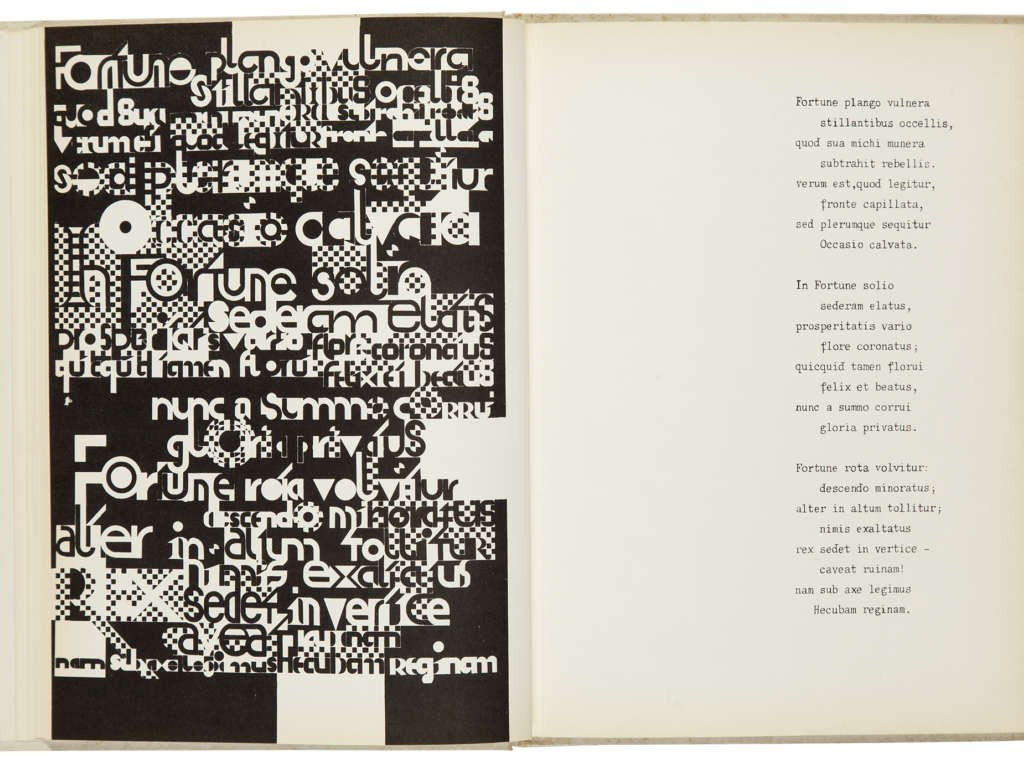 Fortune plango vulnera
stillantibus ocellis
quod sua michi munera subtrahit rebellis
verum est quod legitur fronte capillata
sed plerumque sequitur
Occasio calvata
In Fortune solio
sederam elatus
prosperitatis vario flore coronatus
quicquid tamen florui
felix et beatus
nunc a summo corrui
gloria privatus
Fortune rota volvitur
descendo minoratus
alter in altum tollitur
nimis exaltatus
Rex
sedet in vertice
caveat ruinam
nam sub axe legimus Hecubam Reginam
Fortune plango vulnera
stillantibus occellis,
quod sua michi munera
subtrahit rebellis.
verum est,quod legitur,
fronte capillata,
sed plerumque sequitur
Occasio calvata.
In Fortune solio
sederam elatus,
prosperitatis vario
flore coronatus;
quicquid tamen florui
felix et beatus,
nunc a summo corrui
gloria privatus.
Fortune rota volvitur:
descendo minoratus;
alter in altum tollitur;
nimis exaltatus
rex sedet in vertice –
caveat ruinam!
nam sub axe legimus
Hecubam reginam.